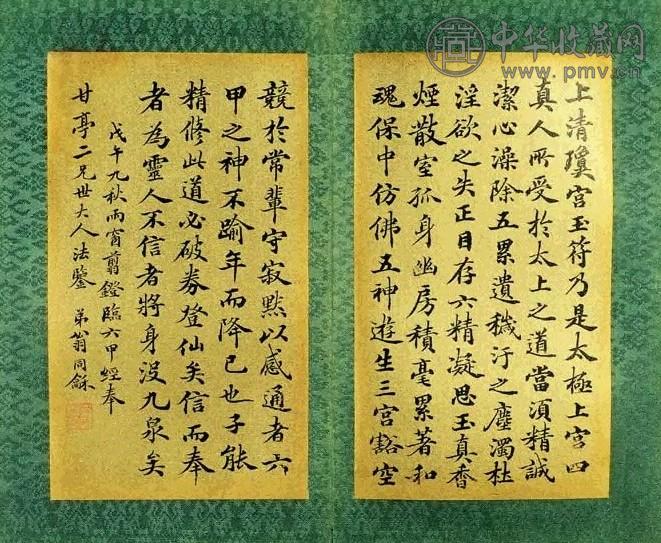 中华收藏网
www.pmv.cn
上清瓊宮玉符乃是太極上宮四
真人所受於太上之道當須精誠
潔心澡除五累遺穢汙之塵濁杜
淫欲之失正目存六精凝思玉真香
煙散室孤身幽房積毫累著和
魂保中仿佛五神遊生三宮豁空
競於常輩守寂默以感通者六
甲之神不踰年而降已也子能
精修此道必破券登仙矣信而奉
者為靈人不信者將身沒九泉矣
戊午九秋雨窗剪鐙臨六甲經奉
甘亭二兄世大人法鑒 弟翁同龢